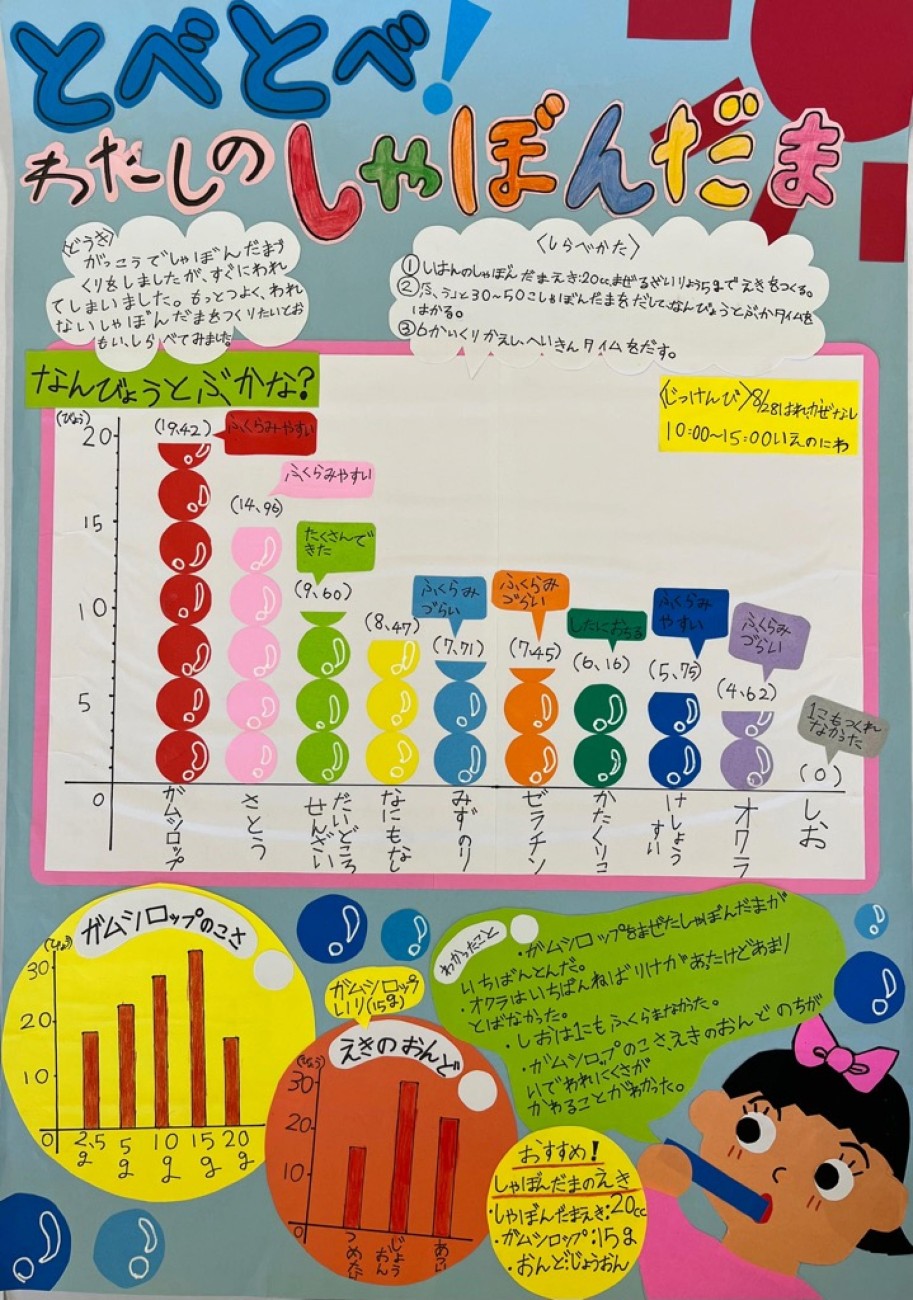 とべとべ!
わたしのしゃぼんだま
〈どうき〉
がっこうでしゃぼんだまづ
くりをしましたが、すぐにわれ
てしまいました。もっとつよく、われ
ないしゃぼんだまをつくりたいとお
もい、しらべてみました。
〈しらべかた〉
①しはんのしゃぼんだまえき:20cc、まぜるざいりょう5gでえきをつくる。
②「ふぅ」と30〜50こしゃぼんだまをだして、なんびょうとぶかタイムを
はかる。
③6かいくりかえし、へいきんタイムをだす。
なんびょうとぶかな?
〈じっけんび〉8/28はれ、かぜなし
10:00〜15:00いえのにわ
(びょう)
20
15
10
5
0
(19,42)
ふくらみやすい
(14,96)
ふくらみやすい
(9,60)
たくさんで
きた
(8,47)
(7,71)
ふくらみ
づらい
(7,45)
ふくらみ
づらい
(6,16)
したにおちる
(5,75)
ふくらみ
やすい
(4,62)
ふくらみ
づらい
(0)
1こもつくれ
なかった
ガムシロップ
さとう
だいどころ
せんざい
なにもなし
みずのり
ゼラチン
かたくりこ
けしょう
すい
オクラ
しお
ガムシロップのこさ
(びょう)
30
20
10
0
2,5g
5g
10g
15g
20g
ガムシロップ
いり(15g)
えきのおんど
(びょう)
30
20
10
0
つめたい
じょう
おん
あつい
わかったこと
・ガムシロップをまぜたしゃぼんだまが
いちばんとんだ。
・オクラはいちばんねばりけがあったけどあまり
とばなかった。
・しおは1こもふくらまなかった。
・ガムシロップのこさ、えきのおんどのちが
いでわれにくさが
かわることがわかった。
おすすめ!
しゃぼんだまのえき
・しゃぼんだまえき:20cc
・ガムシロップ:15g
・おんど:じょうおん